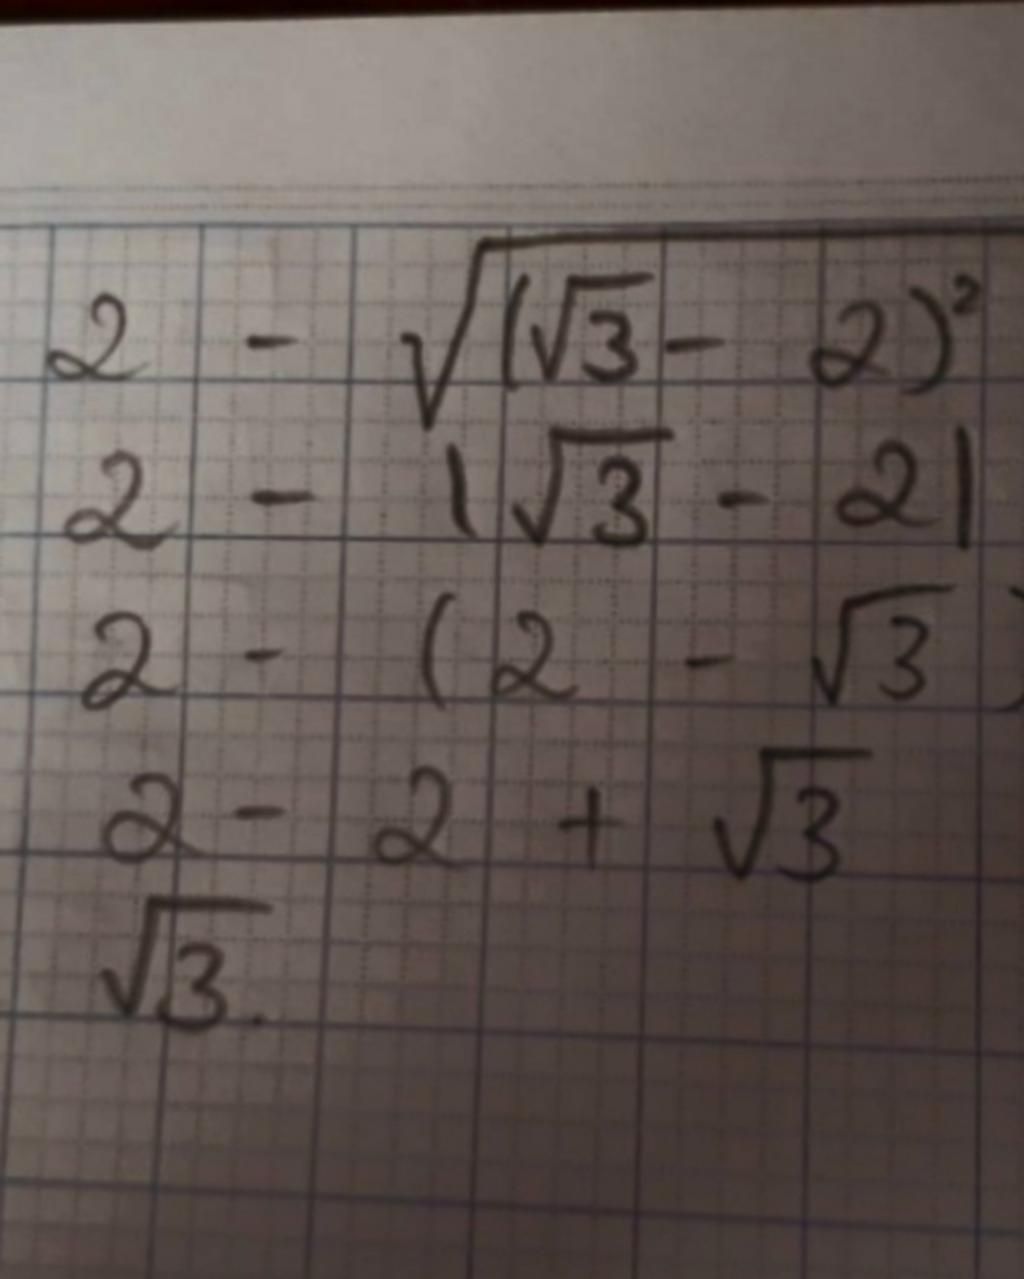 2 - √((√3 - 2)²
2 - |√3 - 2|
2 - (2 - √3)
2 - 2 + √3
√3.